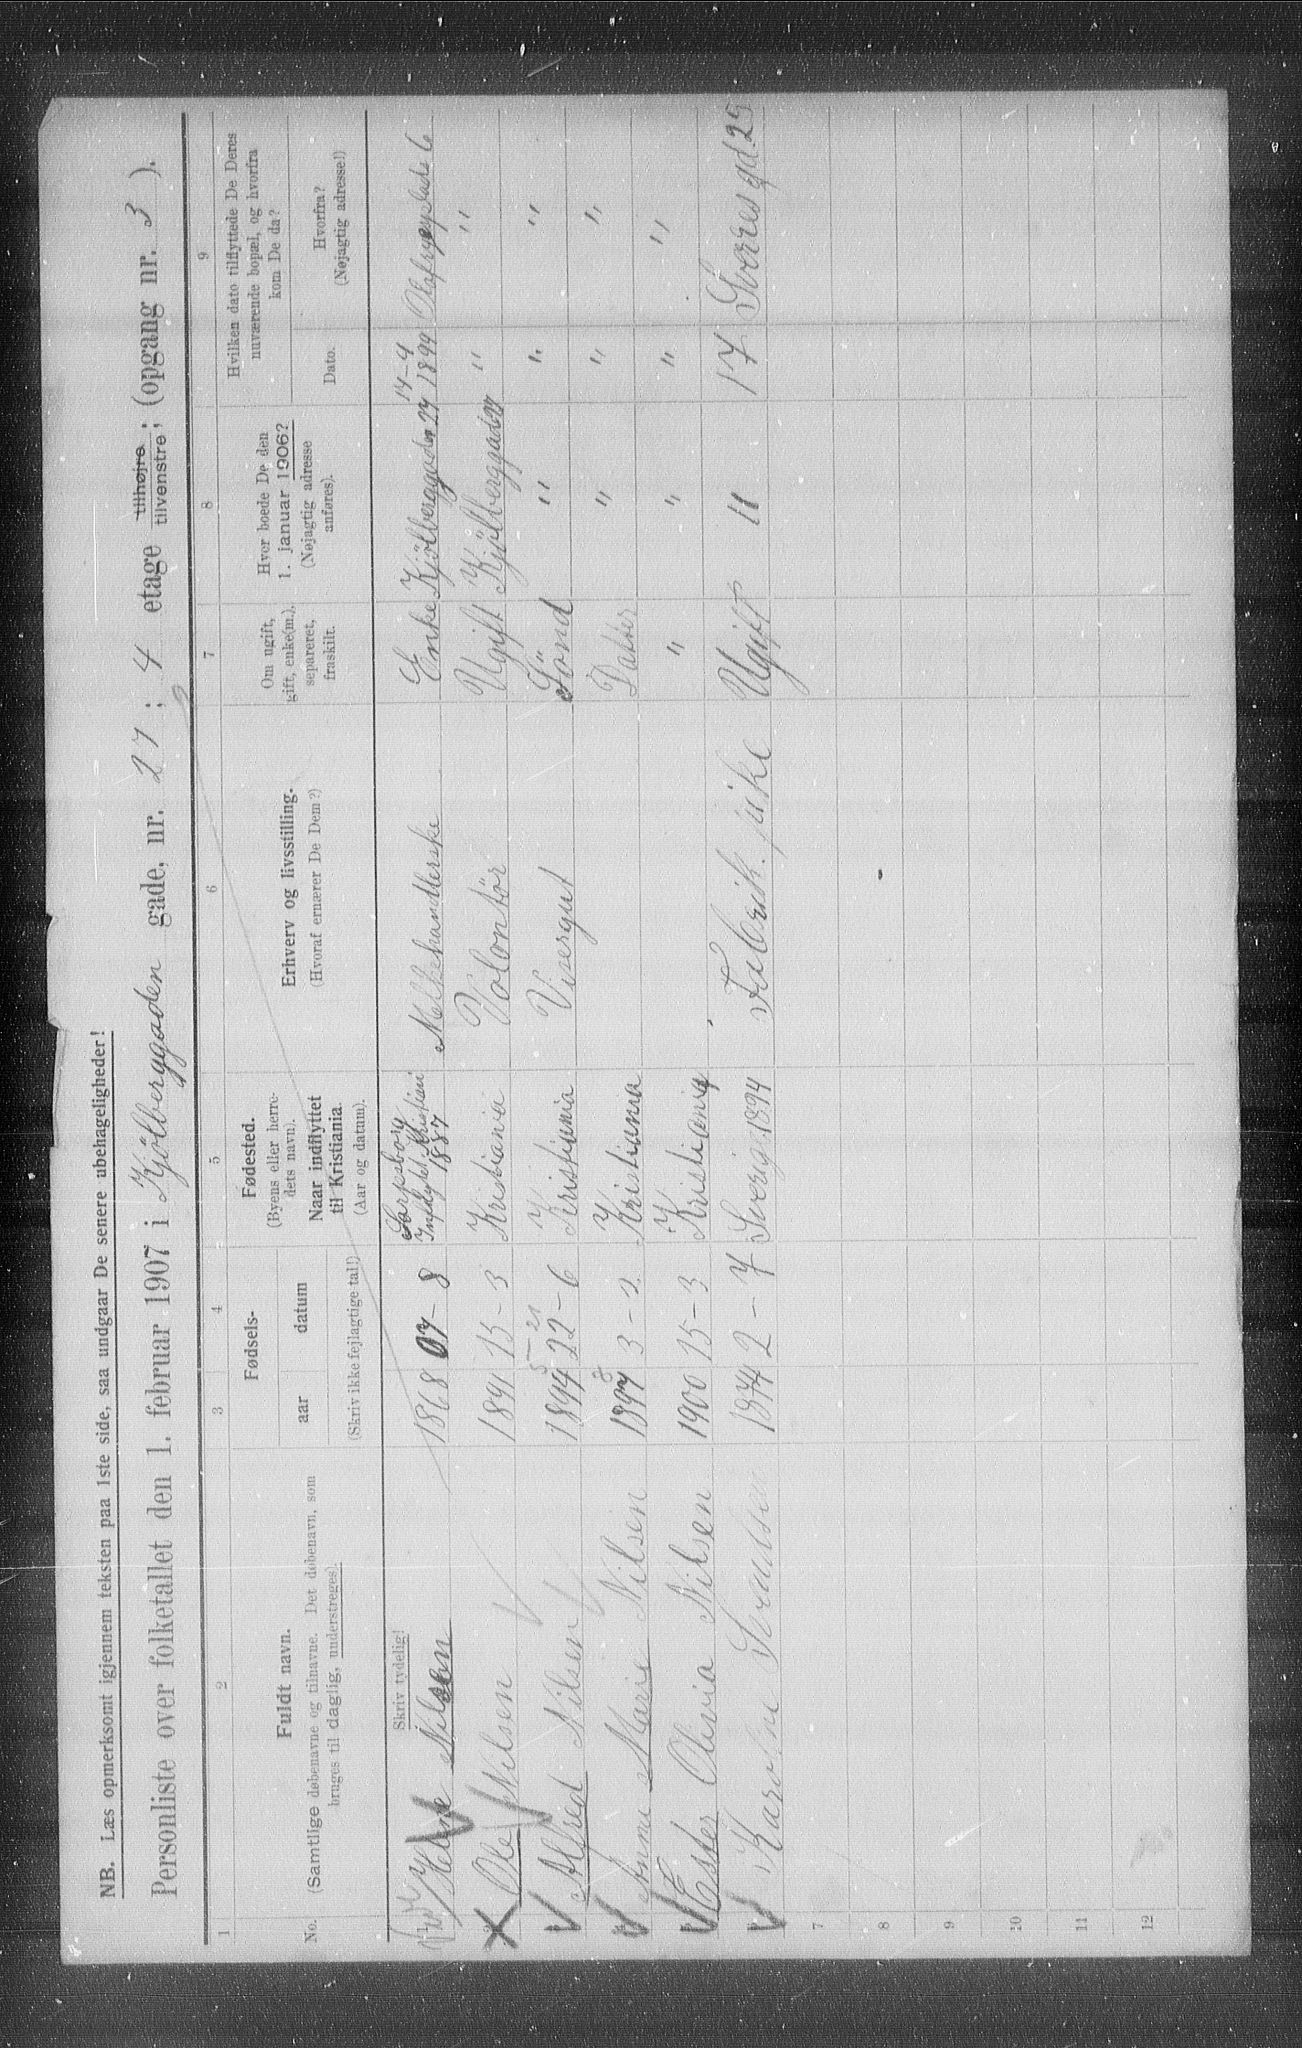 NB. Læs opmerksomt igjennem teksten paa 1ste side, saa undgaar De senere ubehageligheder!
Personliste over folketallet den 1. februar 1907 i Kjölberggaden gade, nr. 27; 4 etage tilhøjre tilvenstre; (opgang nr. 3 ).
1 2 3 4 5 6 7 8 9
No.
Fuldt navn.
(Samtlige døbenavne og tilnavne. Det døbenavn, som
bruges til daglig, understreges).
Fødsels-
aar datum
(Skriv ikke fejlagtige tal!)
Fødested.
(Byens eller herre-
dets navn).
Naar indflyttet
til Kristiania.
(Aar og datum).
Erhverv og livsstilling.
(Hvoraf ernærer De Dem?)
Om ugift,
gift, enke(m.),
separeret,
fraskilt.
Hvor boede De den
1. januar 1906?
(Nøjagtig adresse
anføres).
Hvilken dato tilflyttede De Deres
nuværende bopæl, og hvorfra
kom De da?
Dato.
Hvorfra?
(Nøjagtig adresse!)
Skriv tydelig!
Helene Nilsen 1868 07-8 Sarpsborg Melkehandlerske Enke Kjölberggaden 27 14-4 1899
1887
Ole Nilsen 1891 15-3 Kristiania Volontör Ugift Kjölberggaden 27 " "
Alfred Nilsen 1894 22-6 Kristiania Visergut Sönd " " "
Anne Marie Nilsen 1897 3-2 Kristiania Datter " " "
Ester Olivia Nilsen 1900 15-3 Kristiania " " " "
Karoline 1874 2-7 Sverig 1894 Fabrik. pike Ugift 11 17 Sverresgd. 25
7
8
9
10
11
12